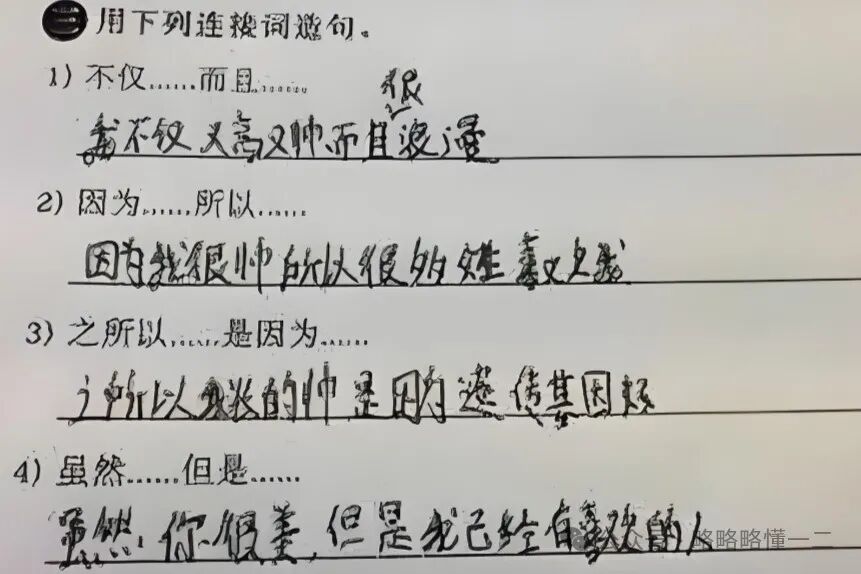 三 用下列连接词造句。
1) 不仅……而且……
很
我不仅又高又帅而且浪漫
2) 因为……所以……
因为我很帅所以很多女生喜欢我
3) 之所以……是因为……
之所以我长的帅是因为遗传基因好
4) 虽然……但是……
虽然你很美,但是我已经有喜欢的人
咯略略懂一二